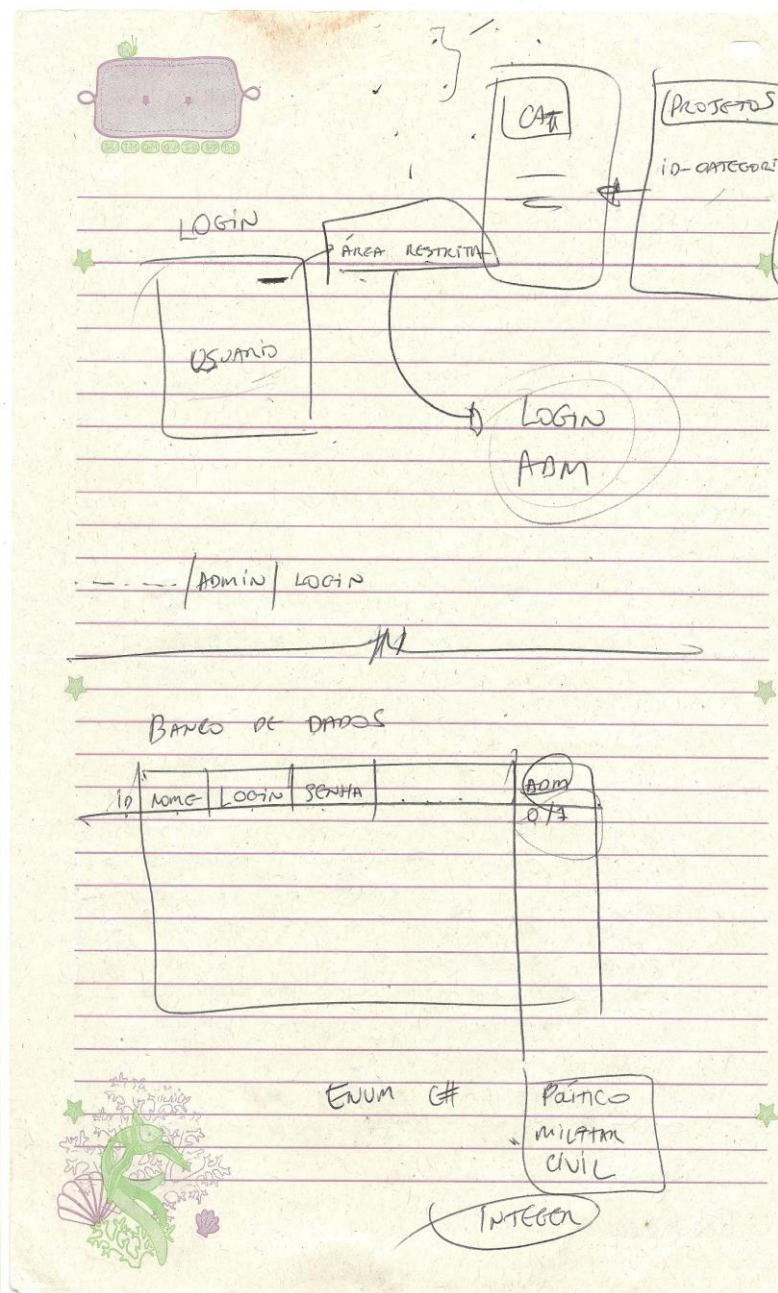 PROJETOS
ID-CATEGORI
LOGIN
ÁREA RESTRITA
USUARIO
LOGIN
ADM
/ADMIN/ LOGIN
BANCO DE DADOS
ID NOME LOGIN SENHA ....... ADM
0/1
ENUM C#
POLÍTICO
MILITAR
CIVIL
INTEGER